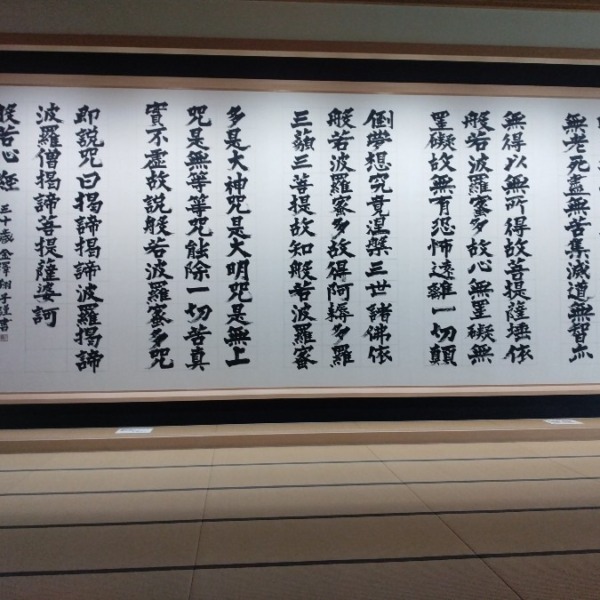 無老死盡無苦集滅道無智亦
無得以無所得故菩提薩埵依
般若波羅蜜多故心無罣礙無
罣礙故無有恐怖遠離一切顛
倒夢想究竟涅槃三世諸佛依
般若波羅蜜多故得阿耨多羅
三藐三菩提故知般若波羅蜜
多是大神呪是大明呪是無上
呪是無等等呪能除一切苦真
實不虚故説般若波羅蜜多呪
即説呪曰揭諦揭諦波羅揭諦
波羅僧揭諦菩提薩婆訶
般若心經 五十歳 金澤翔子謹書